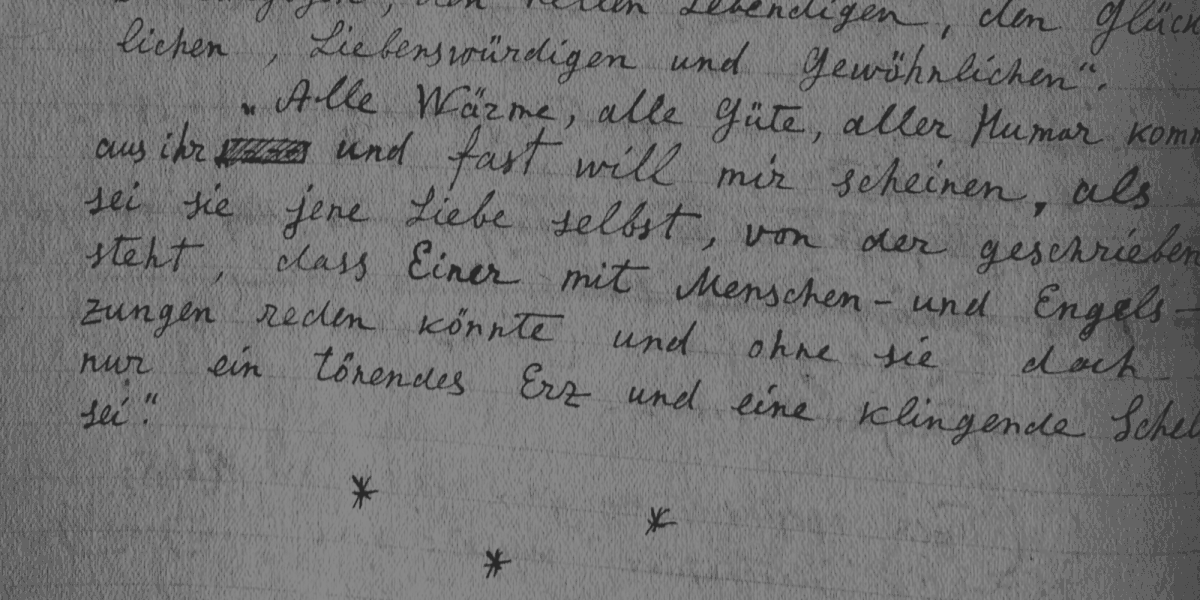 hellen Lebendigen, den Glück
lichen, Liebenswürdigen und Gewöhnlichen“.
„Alle Wärme, alle Güte, aller Humor kom
aus ihr und fast will mir scheinen, als
sei sie jene Liebe selbst, von der geschrieben
steht, dass Einer mit Menschen- und Engels-
zungen reden könnte und ohne sie doch
nur ein tönendes Erz und eine klingende Schel
sei.“